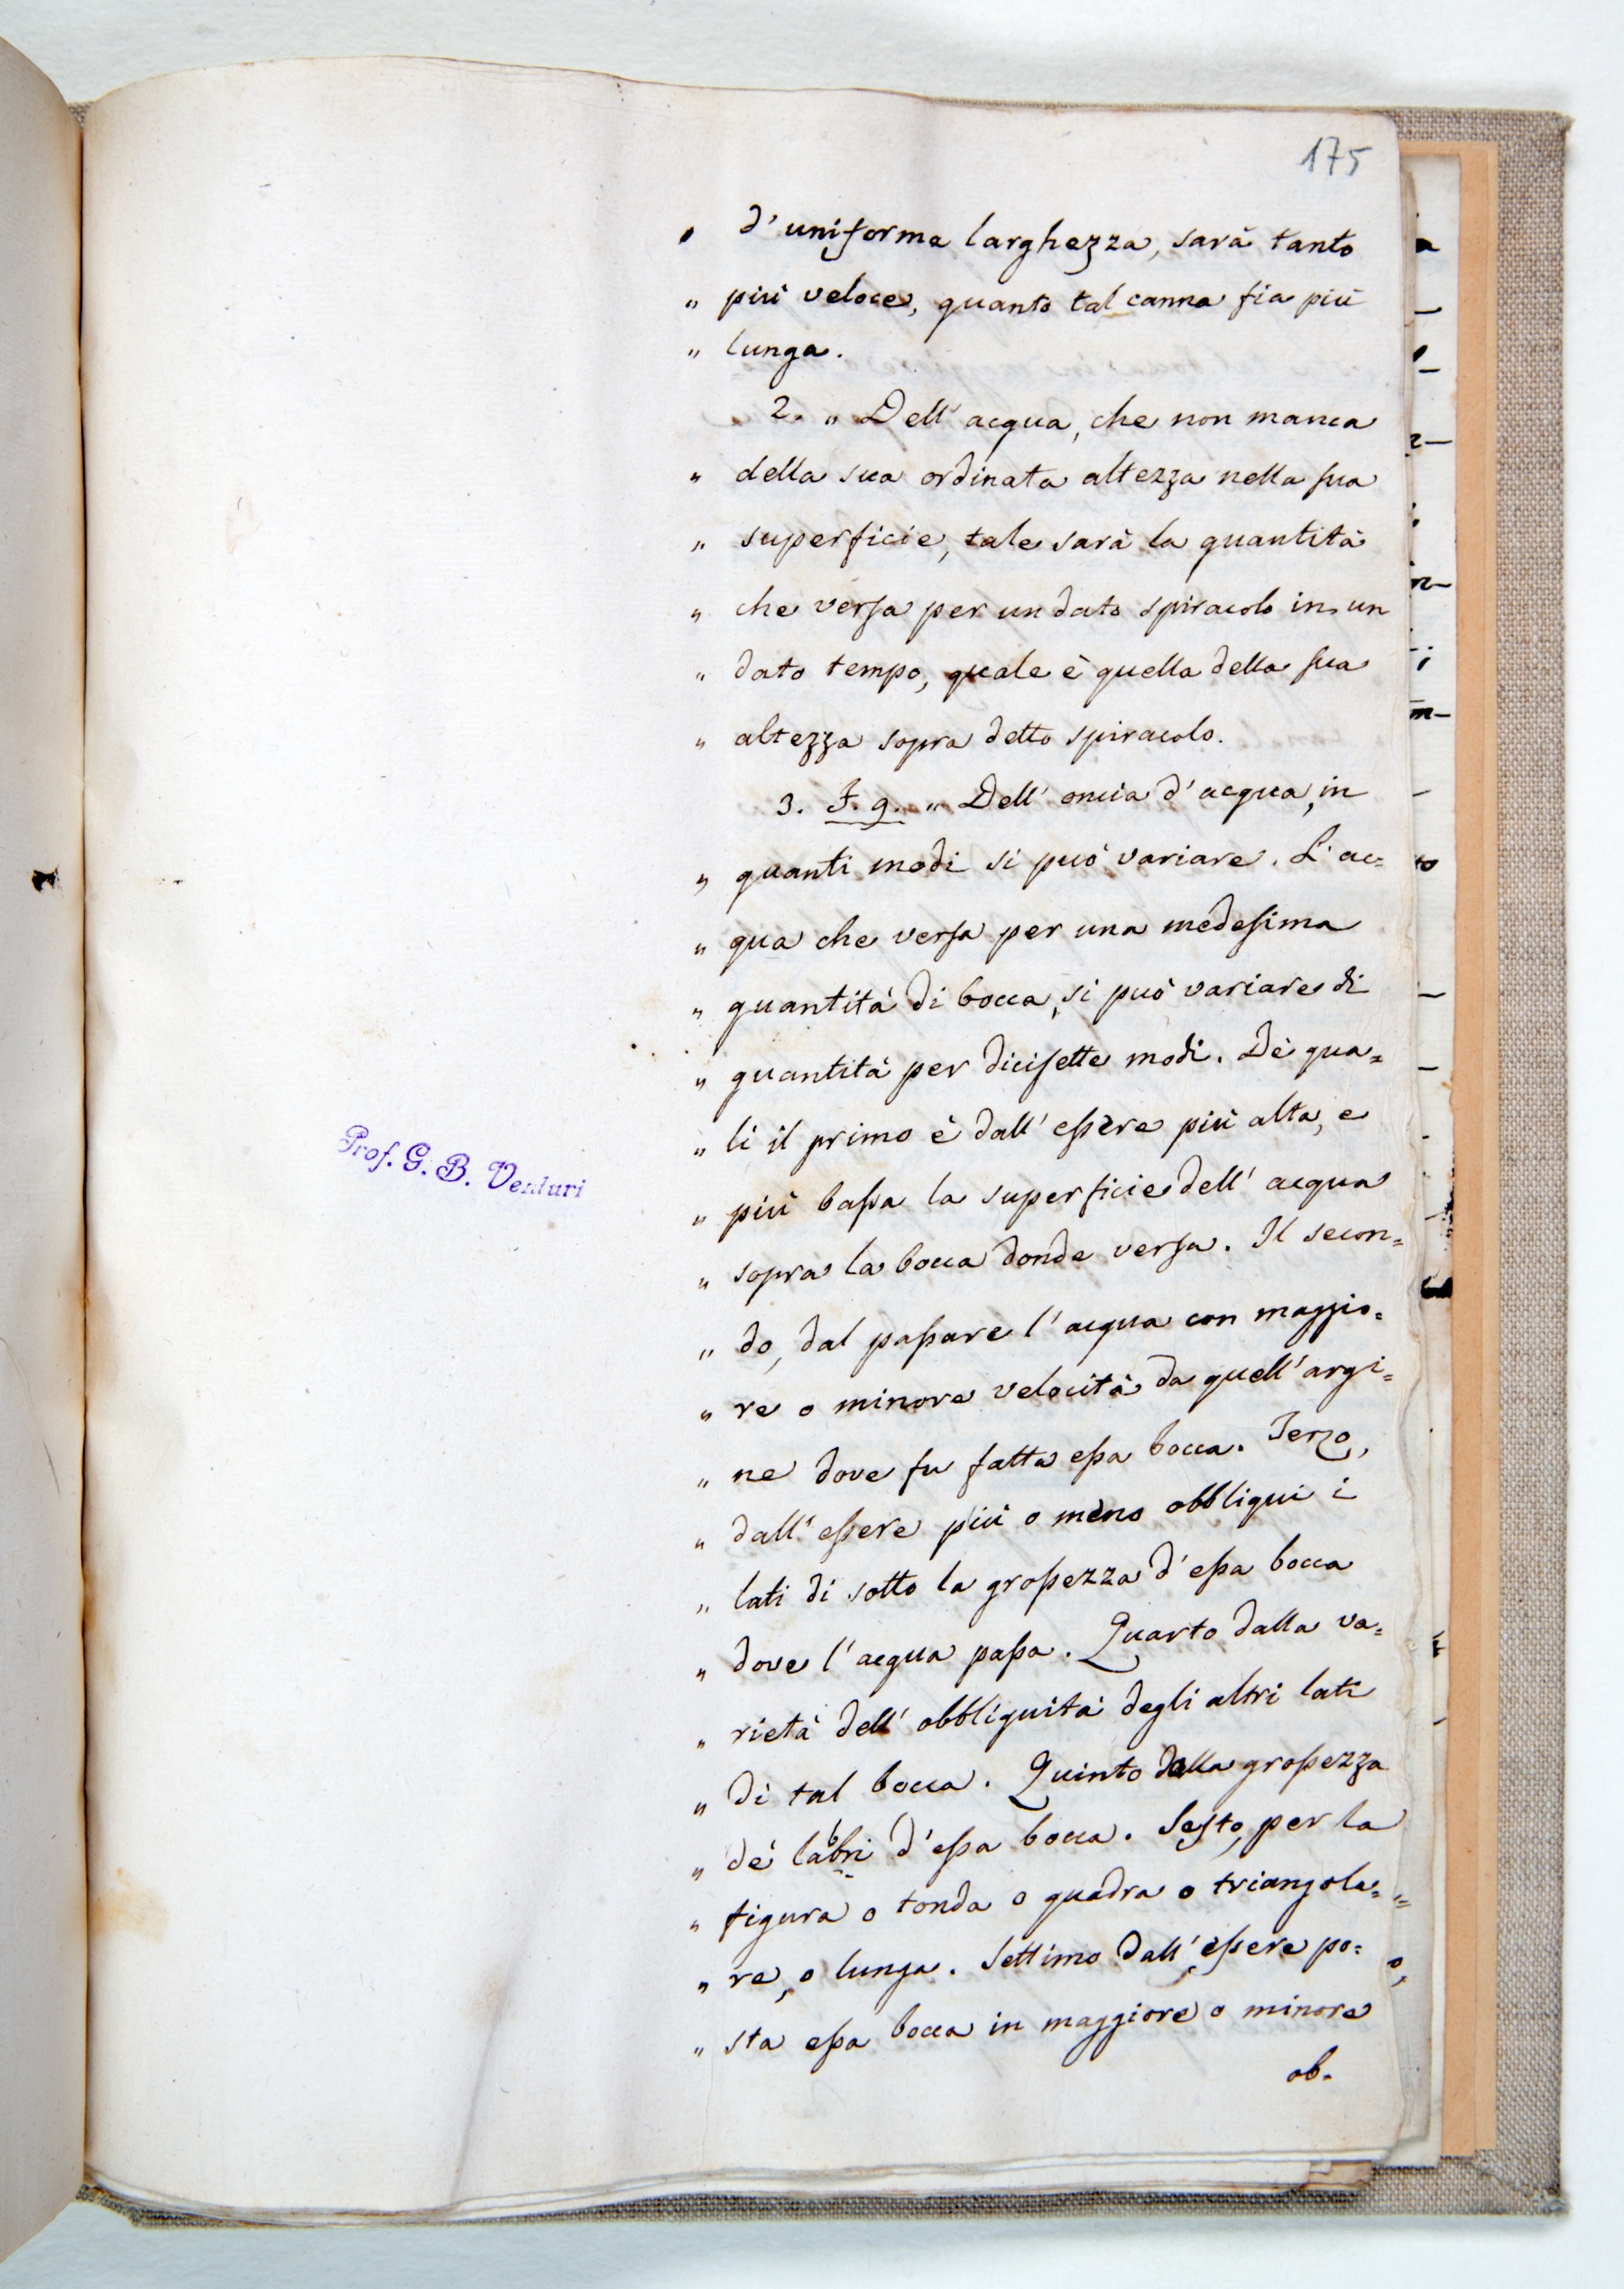 175
„ d'uniforme larghezza, sarà tanto
„ più veloce, quanto tal canna fia più
„ lunga.
2. „ Dell' acqua, che non manca
„ della sua ordinata altezza nella sua
„ superficie, tale sarà la quantità
„ che versa per un dato spiracolo in un
„ dato tempo, quale è quella della sua
„ altezza sopra detto spiracolo.
3. F. 9. „ Dell' oncia d'acqua, in
„ quanti modi si può variare. L'ac=
„ qua che versa per una medesima
„ quantità di bocca, si può variare di
„ quantità per dicisette modi. De' qua=
„ li il primo è dall' essere più alta, e
„ più bassa la superficie dell' acqua
„ sopra la bocca donde versa. Il secon=
„ do, dal passare l'acqua con maggio=
„ re o minore velocità da quell'argi=
„ ne dove fu fatta essa bocca. Terzo,
„ dall'essere più o meno obbliqui i
„ lati di sotto la grossezza d'essa bocca
„ dove l'acqua passa. Quarto dalla va=
„ rietà dell' obbliquità degli altri lati
„ di tal bocca. Quinto dalla grossezza
„ de' labri d'essa bocca. Sesto, per la
„ figura o tonda o quadra o triangola=
„ re, o lunga. Settimo dall'essere po=
„ sta essa bocca in maggiore o minore
ob=
Prof. G. B. Venturi